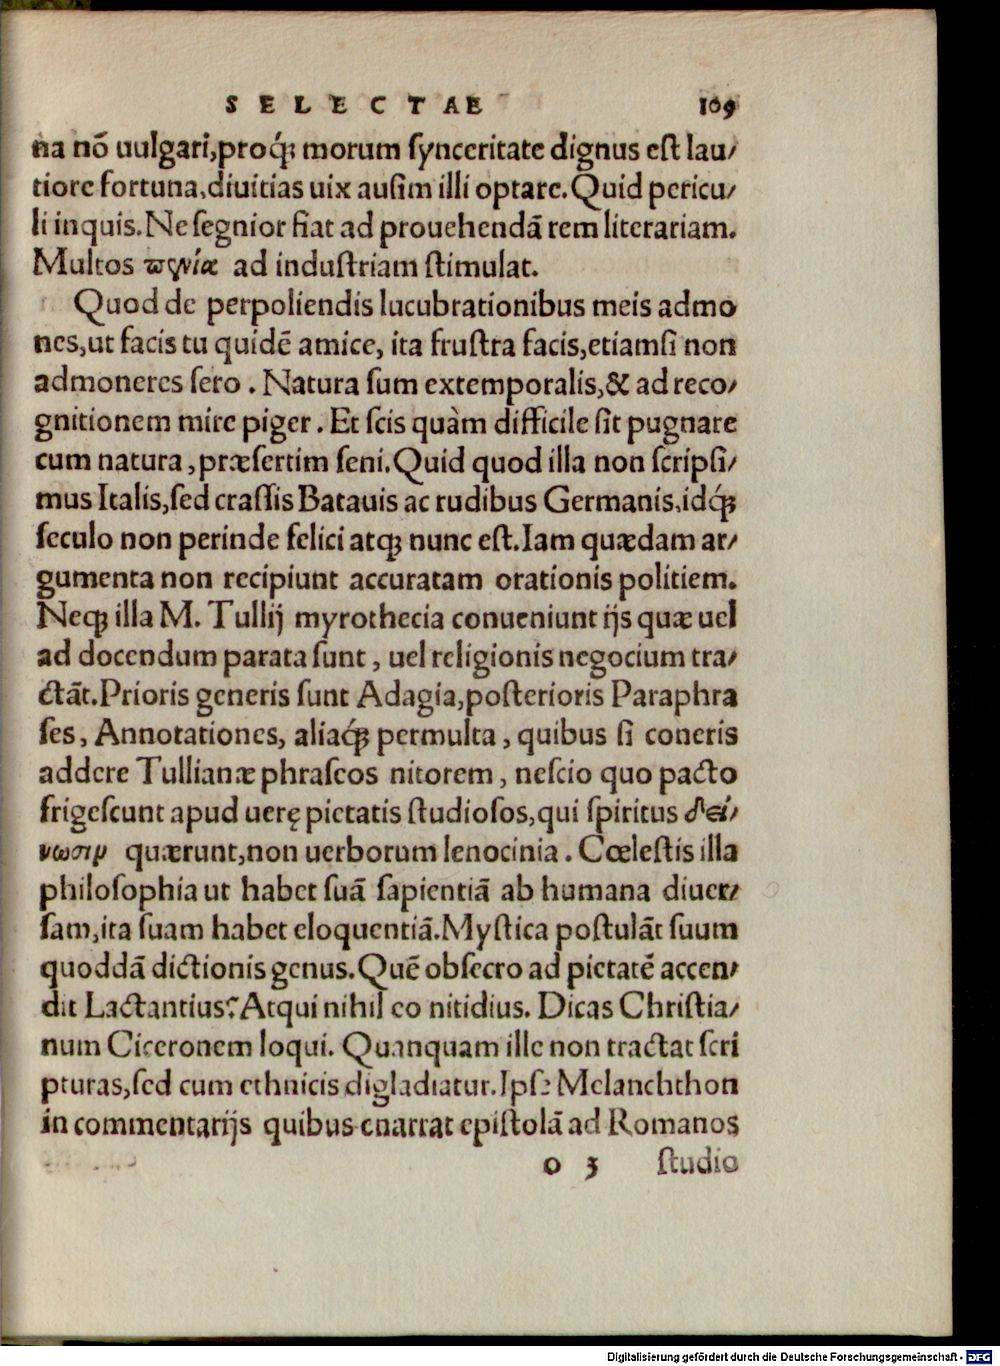 SELECTAE 109
na nõ uulgari,proq́ꝫ morum ſynceritate dignus eſt lau/
tiore fortuna,diuitias uix auſim illi optare.Quid pericu/
li inquis.Ne ſegnior fiat ad prouehendã rem literariam.
Multos πενία ad induſtriam ſtimulat.
Quod de perpoliendis lucubrationibus meis admo
nes,ut facis tu quidẽ amice, ita fruſtra facis,etiamſi non
admoneres ſero. Natura ſum extemporalis,& ad reco/
gnitionem mire piger. Et ſcis quàm difficile ſit pugnare
cum natura,præſertim ſeni.Quid quod illa non ſcripſi/
mus Italis,ſed craſſis Batauis ac rudibus Germanis,idq́ꝫ
ſeculo non perinde felici atqꝫ nunc eſt.Iam quædam ar/
gumenta non recipiunt accuratam orationis politiem.
Neqꝫ illa M. Tullij myrothecia conueniunt ijs quæ uel
ad docendum parata ſunt, uel religionis negocium tra/
ctãt.Prioris generis ſunt Adagia,poſterioris Paraphra
ſes, Annotationes, aliaq́ꝫ permulta, quibus ſi coneris
addere Tullianæ phraſeos nitorem, neſcio quo pacto
frigeſcunt apud uerę pietatis ſtudioſos,qui ſpiritus δεί/
νωσιν quærunt,non uerborum lenocinia. Cœleſtis illa
philoſophia ut habet ſuã ſapientiã ab humana diuer/
ſam,ita ſuam habet eloquentiã.Myſtica poſtulãt ſuum
quoddã dictionis genus.Quẽ obſecro ad pietatẽ accen/
dit Lactantius?Atqui nihil eo nitidius. Dicas Chriſtia/
num Ciceronem loqui. Quanquam ille non tractat ſcri
pturas,ſed cum ethnicis digladiatur.Ipſe Melanchthon
in commentarijs quibus enarrat epiſtolã ad Romanos
o 3 ſtudio
Digitalisierung gefördert durch die Deutsche Forschungsgemeinschaft - DFG